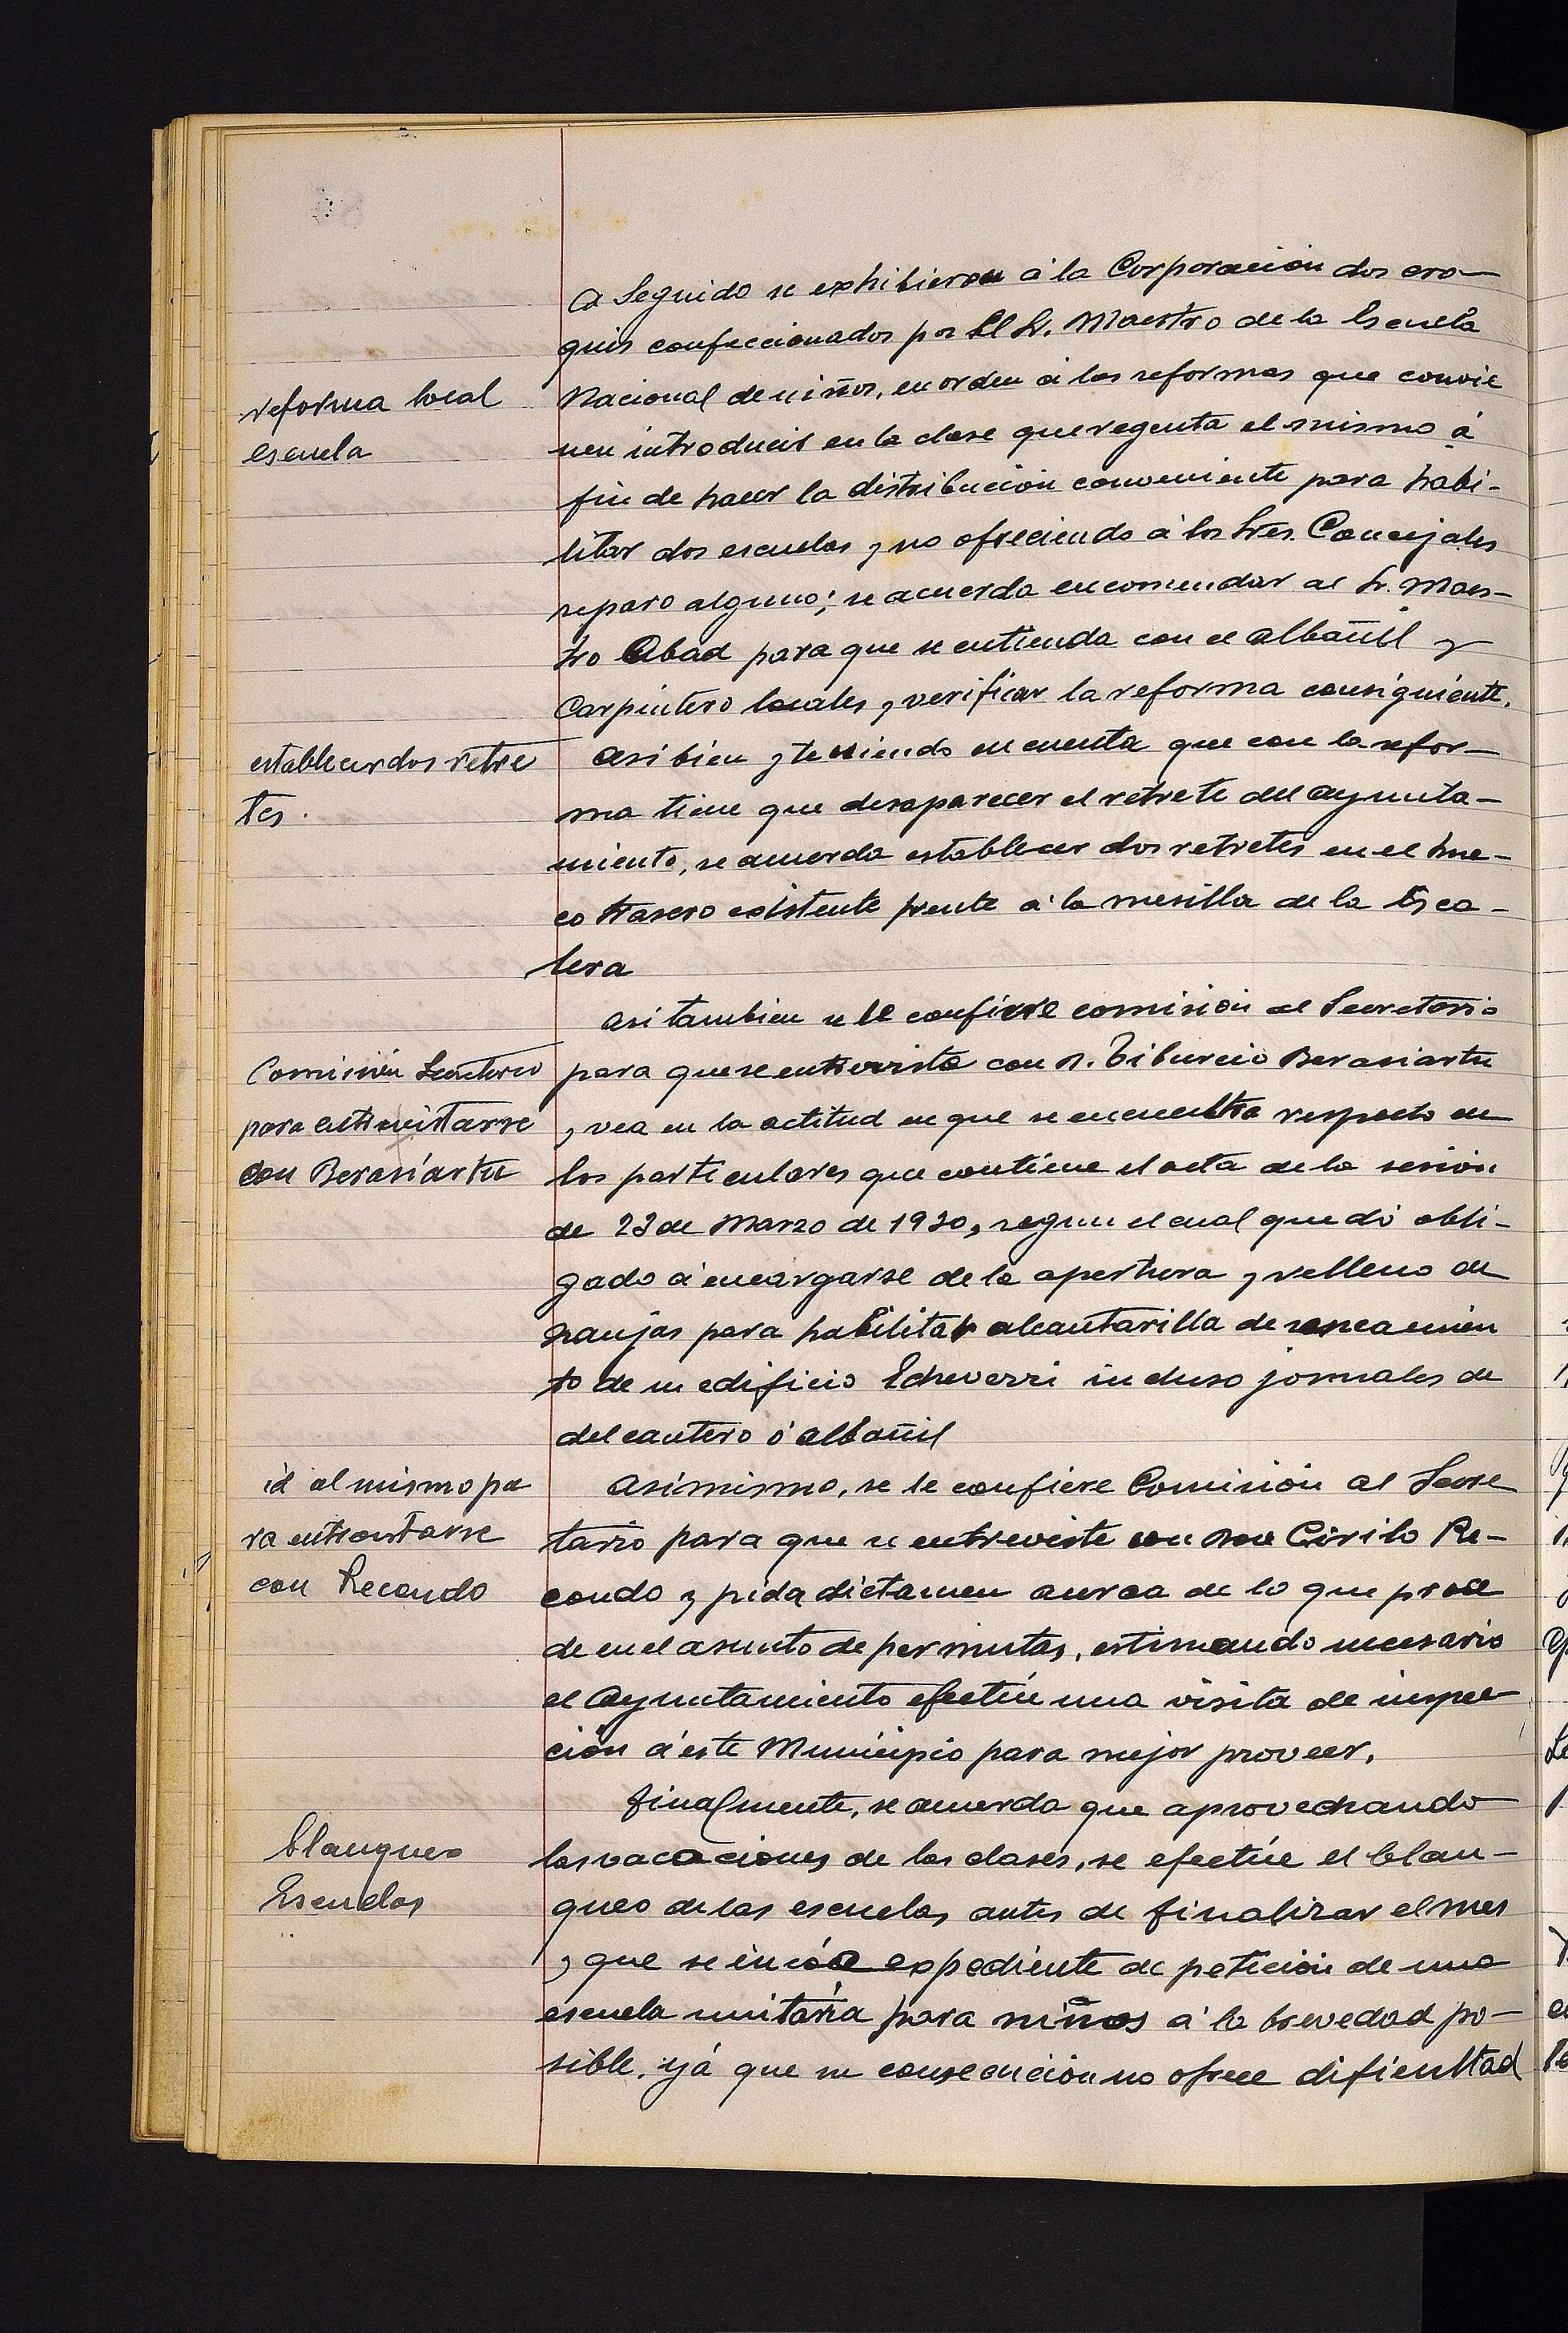 A Seguido se exhibieron á la Corporación dos cro-
quis confeccionados por El Sr. Maestro de la Escuela
reforma local
Nacional de niños, en orden á las reformas que convie
escuela
nen introducir en la clase que regenta el mismo á
fin de hacer la distribución conveniente para habi-
litar dos escuelas y no ofreciendo á los Sres. Concejales
reparo alguno; se acuerda encomendar al Sr. Maes-
tro Abad para que se entienda con el albañil y
Carpintero locales y verificar la reforma consiguiente.
establecer dos retre
tes.
Asi bien y teniendo en cuenta que con la refor-
ma tiene que desaparecer el retrete del ayunta-
miento, se acuerda establecer dos retretes en el hue-
co trasero existente frente á la mesilla de la Esca-
lera
Asi tambien se le confiere comisión al Secretario
Comisión Secretario
para entrevistarse
con Berasiartu
para que se entrevista con D. Tiburcio Berasiartu
y vea en la actitud en que se encuentra respecto en
los particulares que contiene el acta de la sesión
de 23 de Marzo de 1930, segun el cual quedó obli-
gado á encargarse de la apertura y relleno de
zanjas para habilitar alcantarilla de saneamien
to de su edificio Echeverri incluso jornales de
del cantero ó albañil
id al mismo pa
ra entrevistarse
con Recondo
Asimismo, se le confiere Comisión al Secre
tario para que se entreviste con Don Cirilo Re-
condo y pida dictamen acerca de lo que proce
de en el asunto de permutas, estimando necesario
el Ayuntamiento efectúe una visita de inspec
ción á este Municipio para mejor proveer.
Finalmente, se acuerda que aprovechando
Blanqueo
Escuelas
las vacaciones de las clases, se efectúe el blan-
queo de las escuelas antes de finalizar el mes
y que se inicie expediente de petición de una
escuela unitaria para niños á la brevedad po-
sible, yá que su consecución no ofrece dificultad